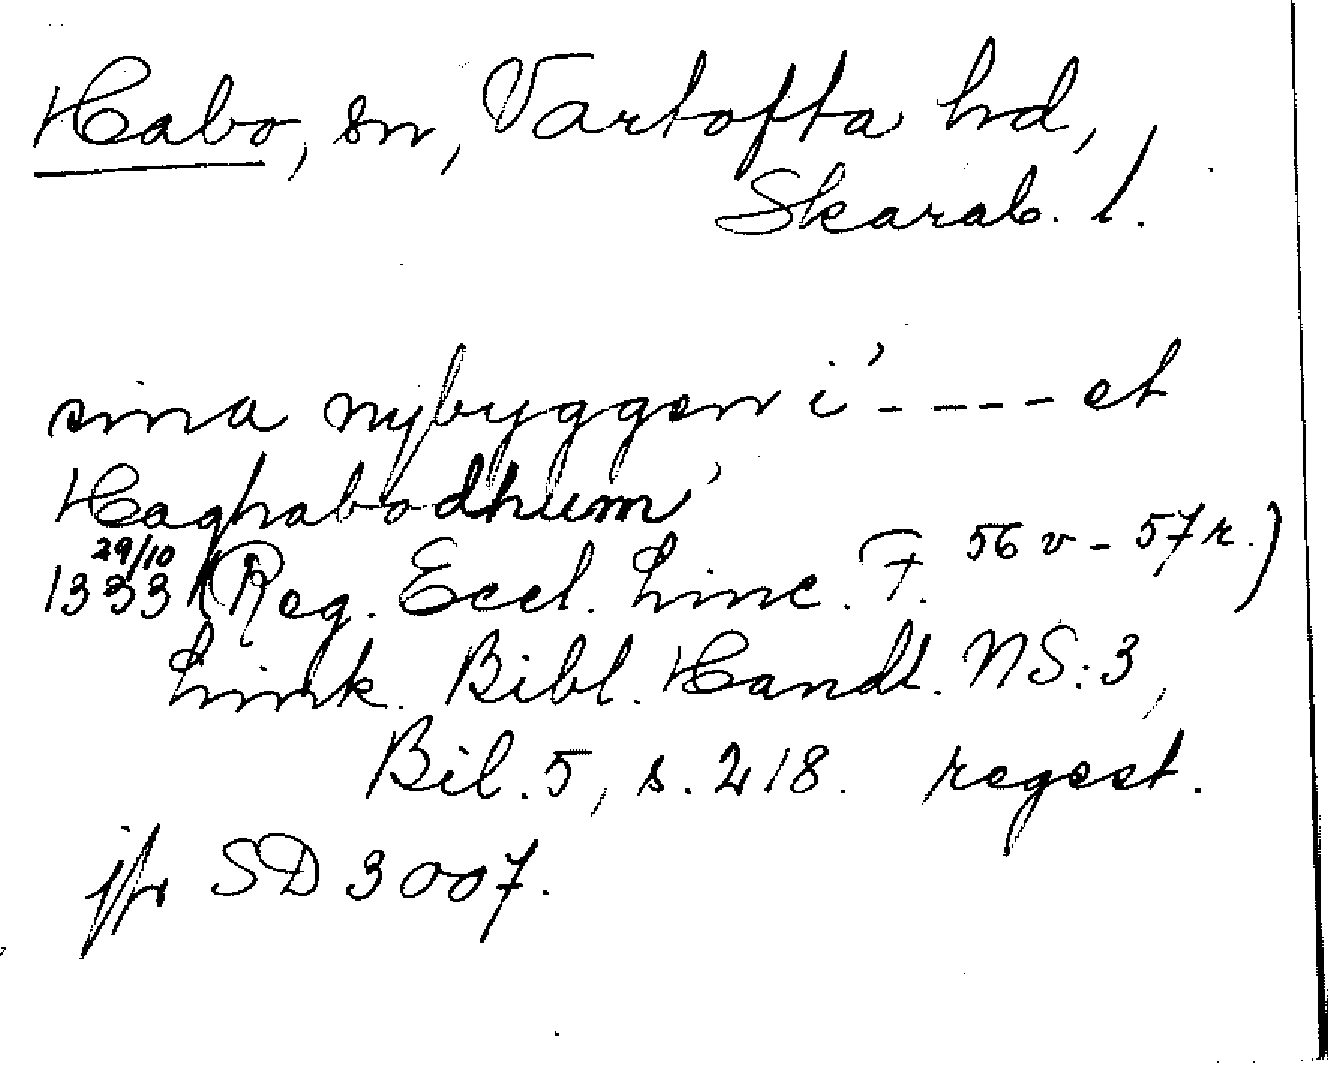 Habo, sn, Vartofta hd,
Skarab. l.
sina nybyggen i' - - - - et
Haghabodhum'
29/10
1333 (Reg. Eccl. Linc. F. 56 v - 57 r.)
Link. Bibl. Handl. NS:3,
Bil. 5, s. 218. regest.
jfr SD 3007.